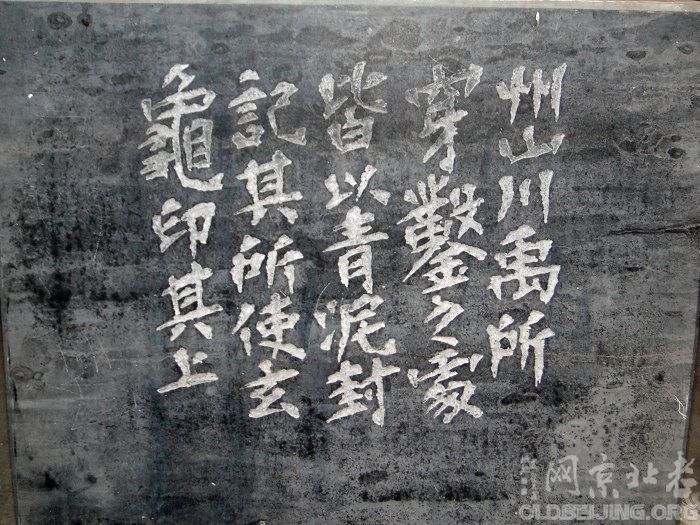 州山川禹所
穿鑿之處
皆以青泥封
記其所使玄
龜印其上
老北京网
OLDBEIJING.ORG